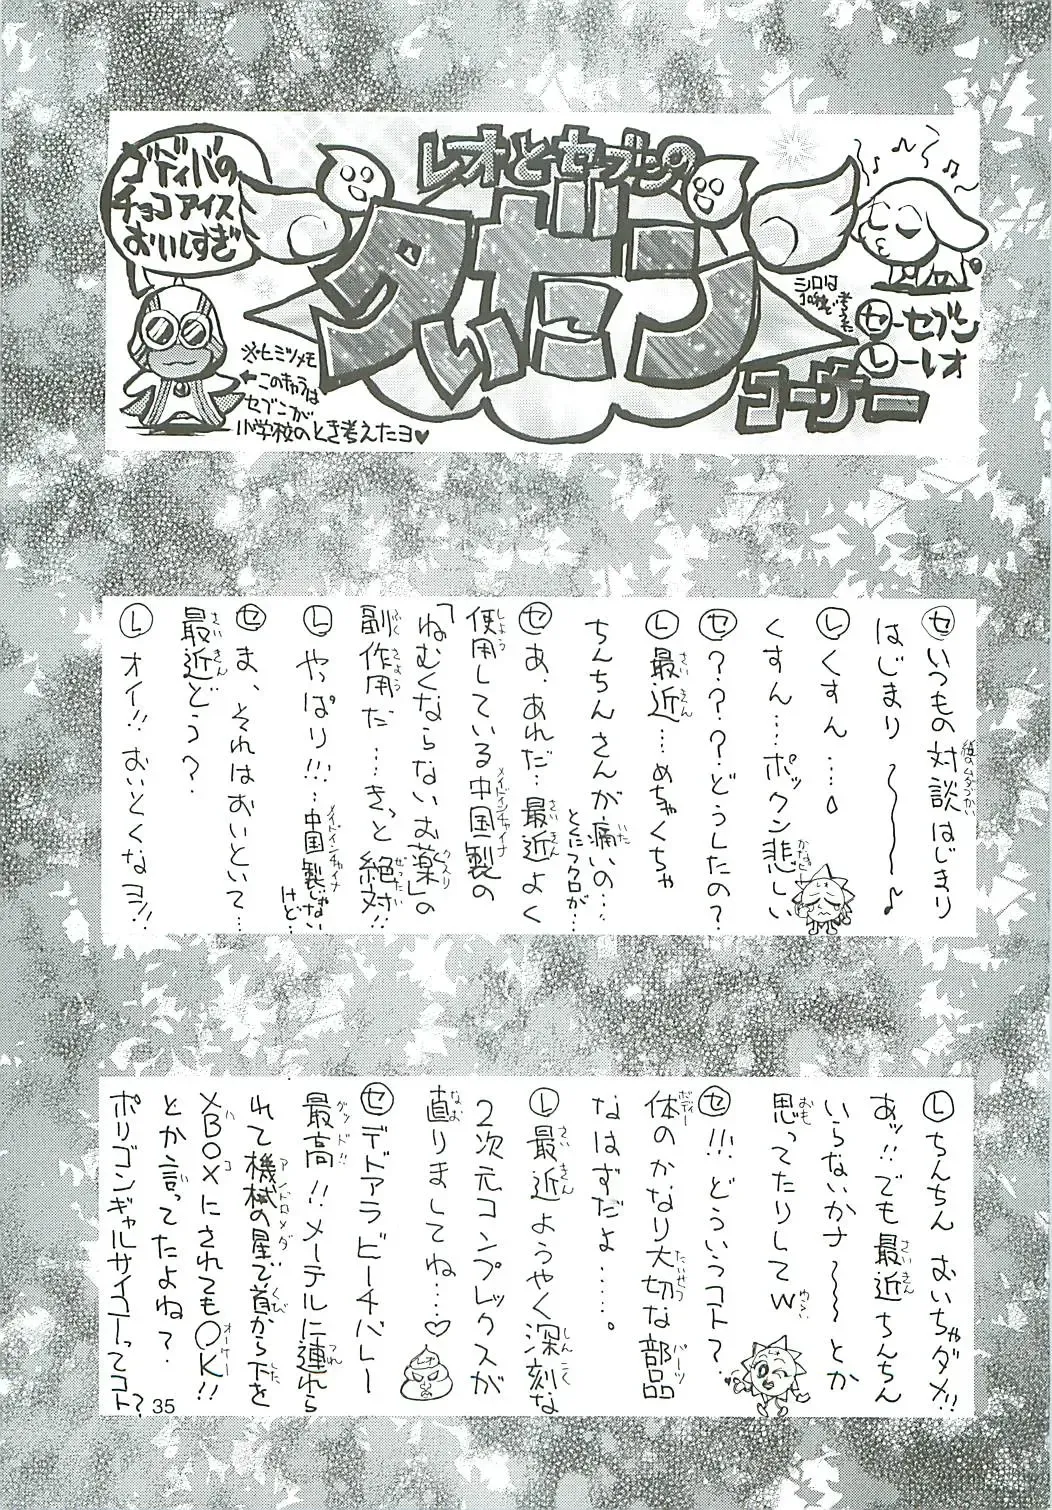 レオとセブンの
対談
コーナー
ゴディバの
チョコアイス
おいしすぎ
※ヒミツメモ
←このきゃらは
セブンが
小学校のとき考えたヨ♥
シロは
セ－セブン
レ－レオ
セ いつもの対談はじまり
はじまり〜〜〜♪
レ くすん…。
くすん…ポックン悲しい
セ ？？？どうしたの？
レ 最近…めちゃくちゃ
ちんちんさんが痛いの…
とくにフクロが…
セ あ、あれだ…最近よく
使用している中国製の
「ねむくならないお薬」の
副作用だ…きっと絶対!!
レ やっぱり!!!…中国製じゃない
けど…
セ ま、それはおいといて…
最近どう？
レ オイ!!おいとくなヨ!!
レ ちんちん おいちゃダメ!!
あッ!!でも最近ちんちん
いらないかナ〜〜〜とか
思ってたりしてw
セ !!!どういうコト？
体のかなり大切な部品
なはずだよ……。
レ 最近ようやく深刻な
2次元コンプレックスが
直りましてね…♡
セ デドアラビーチバレー
最高!!メーテルに連れら
れて機械の星で首から下を
XBOXにされても〇K!!
とか言ってたよね？
ポリゴンギャルサイコーってコト？
レオ
35